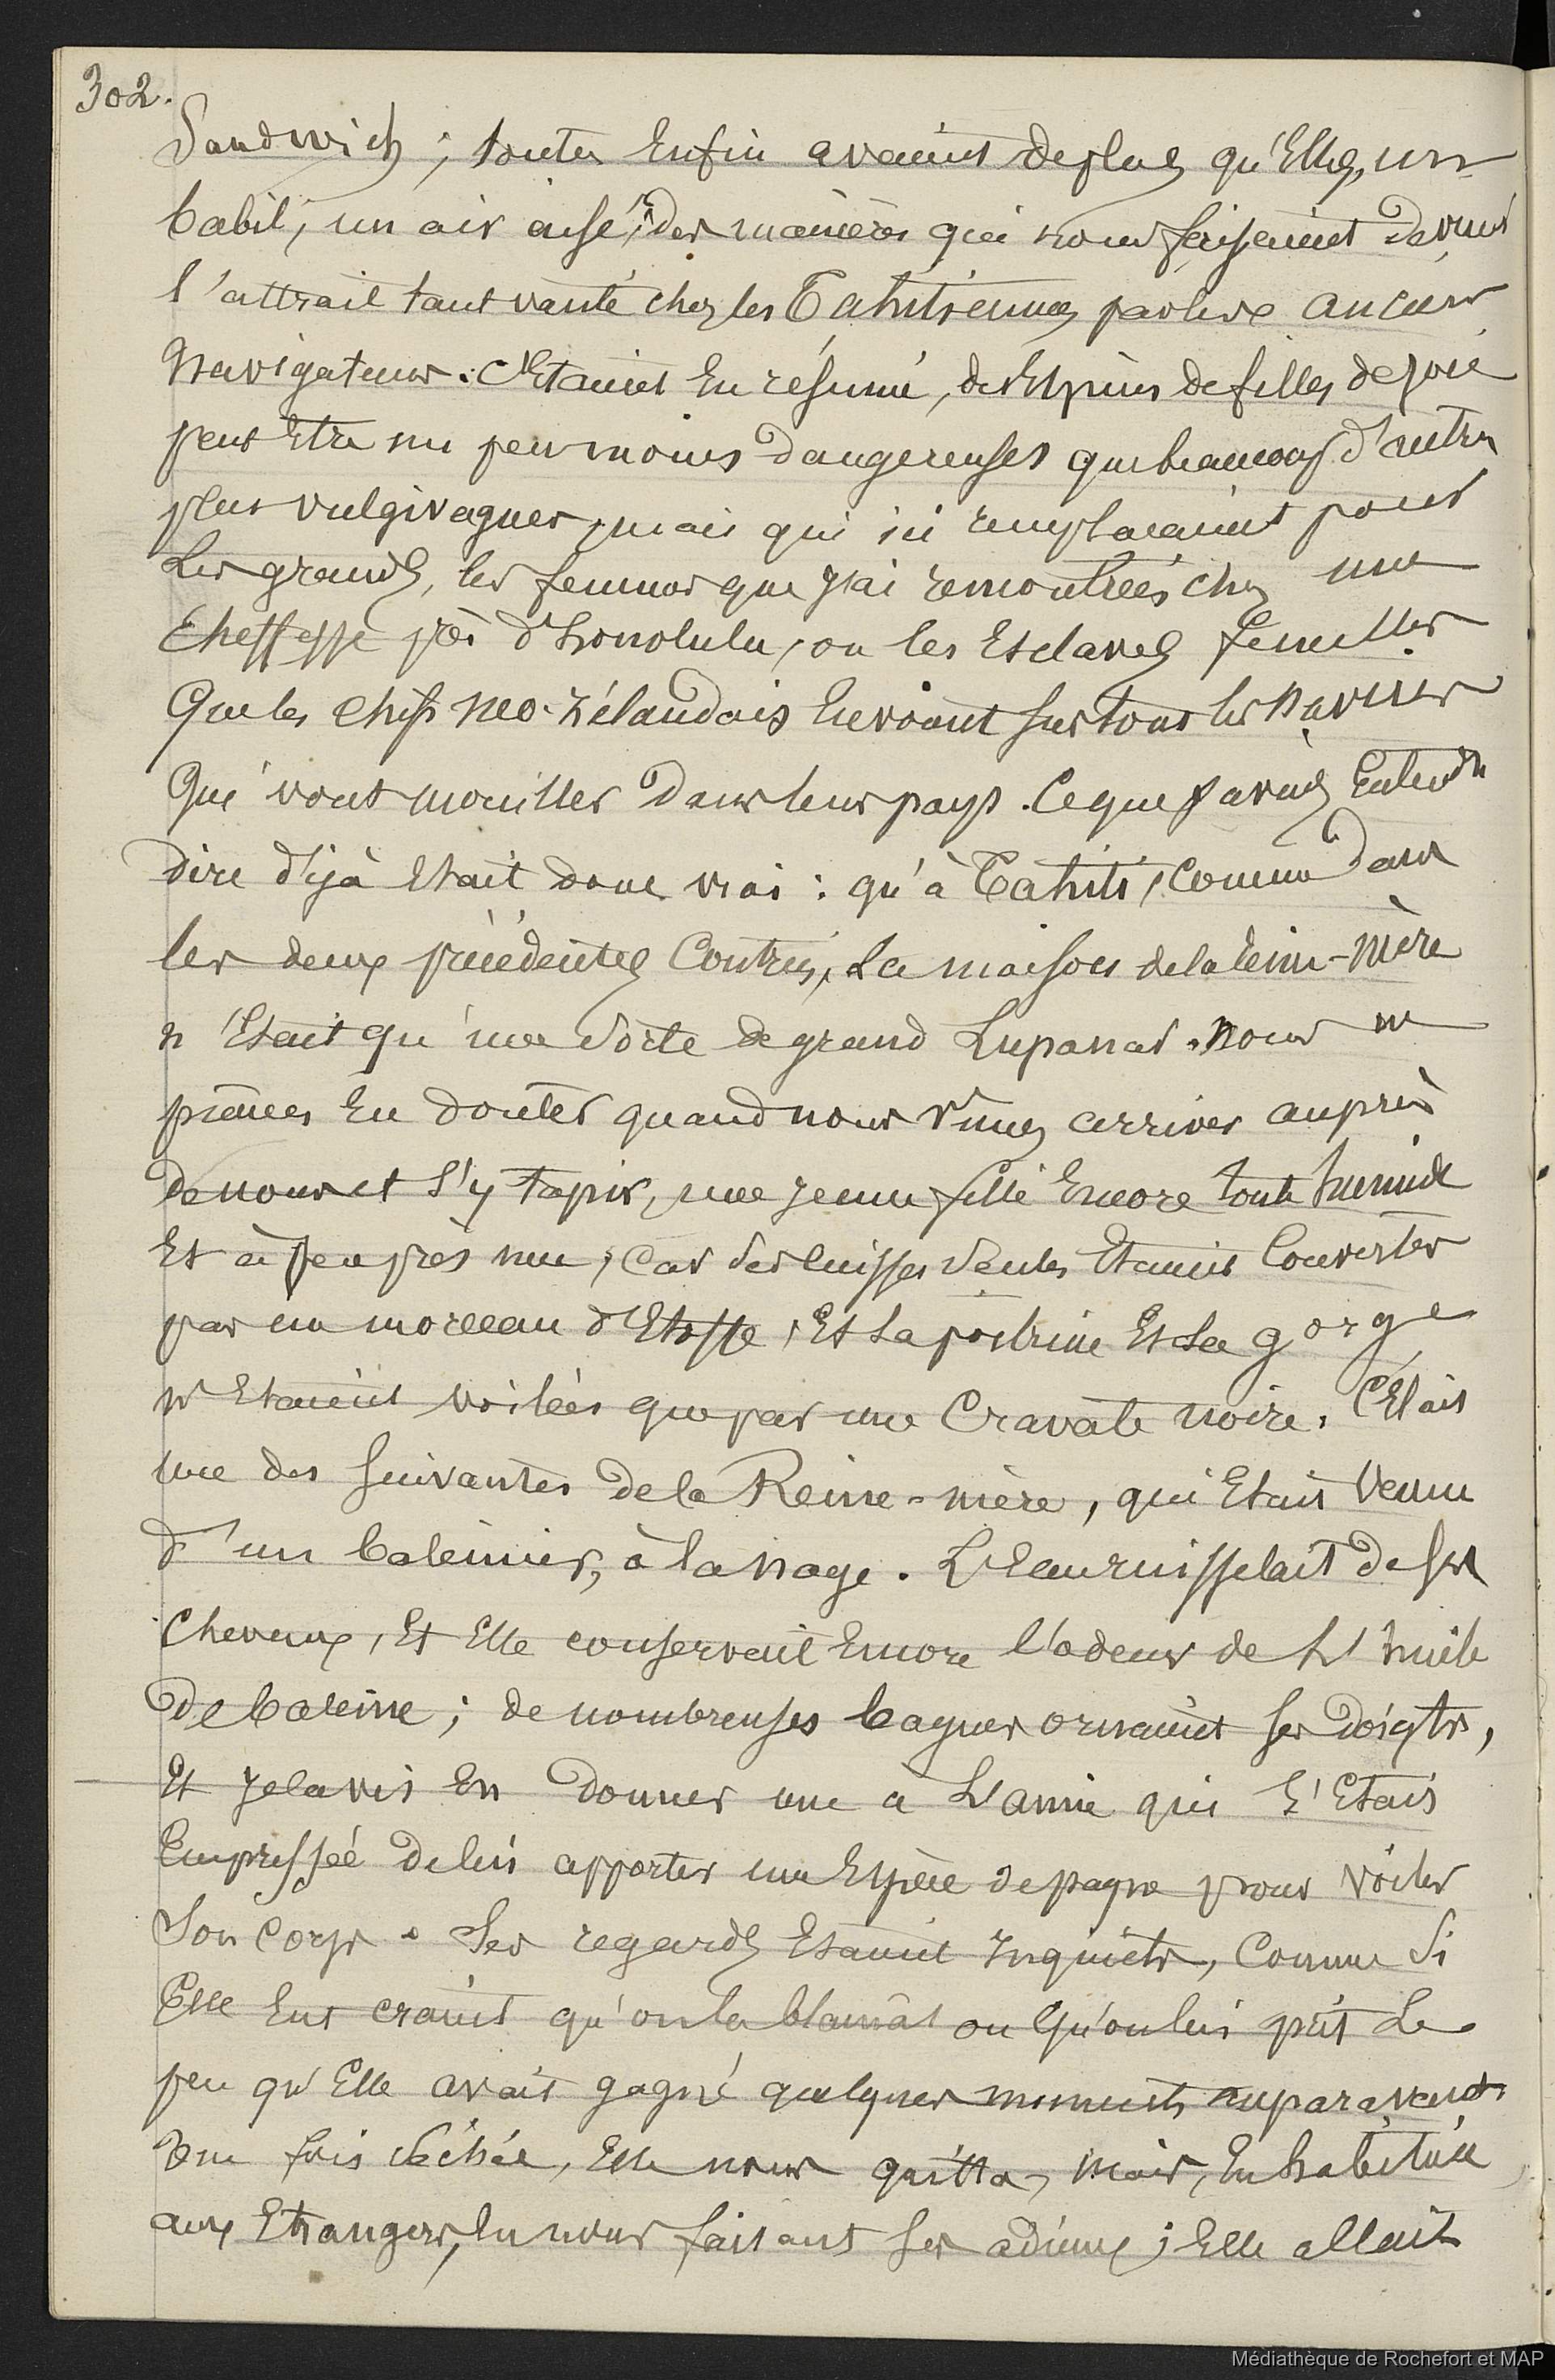 302.
Sandwich ; toutes Enfin avaient de plus qu'Elles, un
babil, un air aisé, des manières qui nous faisaient deviner
l'attrait tant vanté chez les Tahitiennes par les anciens
Navigateurs. C'Etaient En résumé, des Espèces de filles de joie
peut Etre un peu moins dangereuses que beaucoup d'autres
plus vulgivagues, mais qui ici remplacaient pour
Les grands, les femmes que J'ai remontrées chez une
Cheffesse d'honolulu, ou les Esclaves femelles
Que les chefs neo-zélandais Envoient sur tous les navires
Qui vont mouiller dans leur pays. Ce que J'avais Entendu
dire déjà Etait donc vrai : qu'à Tahiti, Comme dans
les deux précédentes Contrées, La maison de la reine-mère
n'Etait qu'une Sorte de grand Lupanar. Nous ne
pûmes En douter quand nous vîmes arriver auprès
de nous et S'y tapir, une Jeune fille Encore toute humide
Et à peu près nue ; Car Ses cuisses Seules Etaient Couvertes
par un morceau d'Etoffe, Et Sa poitrine Et Sa gorge
n'Etaient voilées que par une Cravate noire. C'Etait
une des Suivantes de la Reine-mère, qui Etait venue
d'un baleinier, à la nage. L'Eau ruisselait de ses
Cheveux, Et Elle conservait Encore l'odeur de L'huile
De baleine ; de nombreuses bagues ornaient ses Doigts,
Et Je la vis En Donner une à L'amie qui S'Etait
Empressée de lui apporter une Espèce de pagne pour voiler
Son Corps. Ses regards Etaient Inquiets, Comme Si
Elle Eut craint qu'on la blamât ou qu'on lui prit Le
peu qu'Elle avait gagné quelques moments auparavant.
Une fois séchée, Elle nous quitta, mais, En habituée
aux Etrangers, En nous faisant Ses adieux ; Elle allait
Médiathèque de Rochefort et MAP